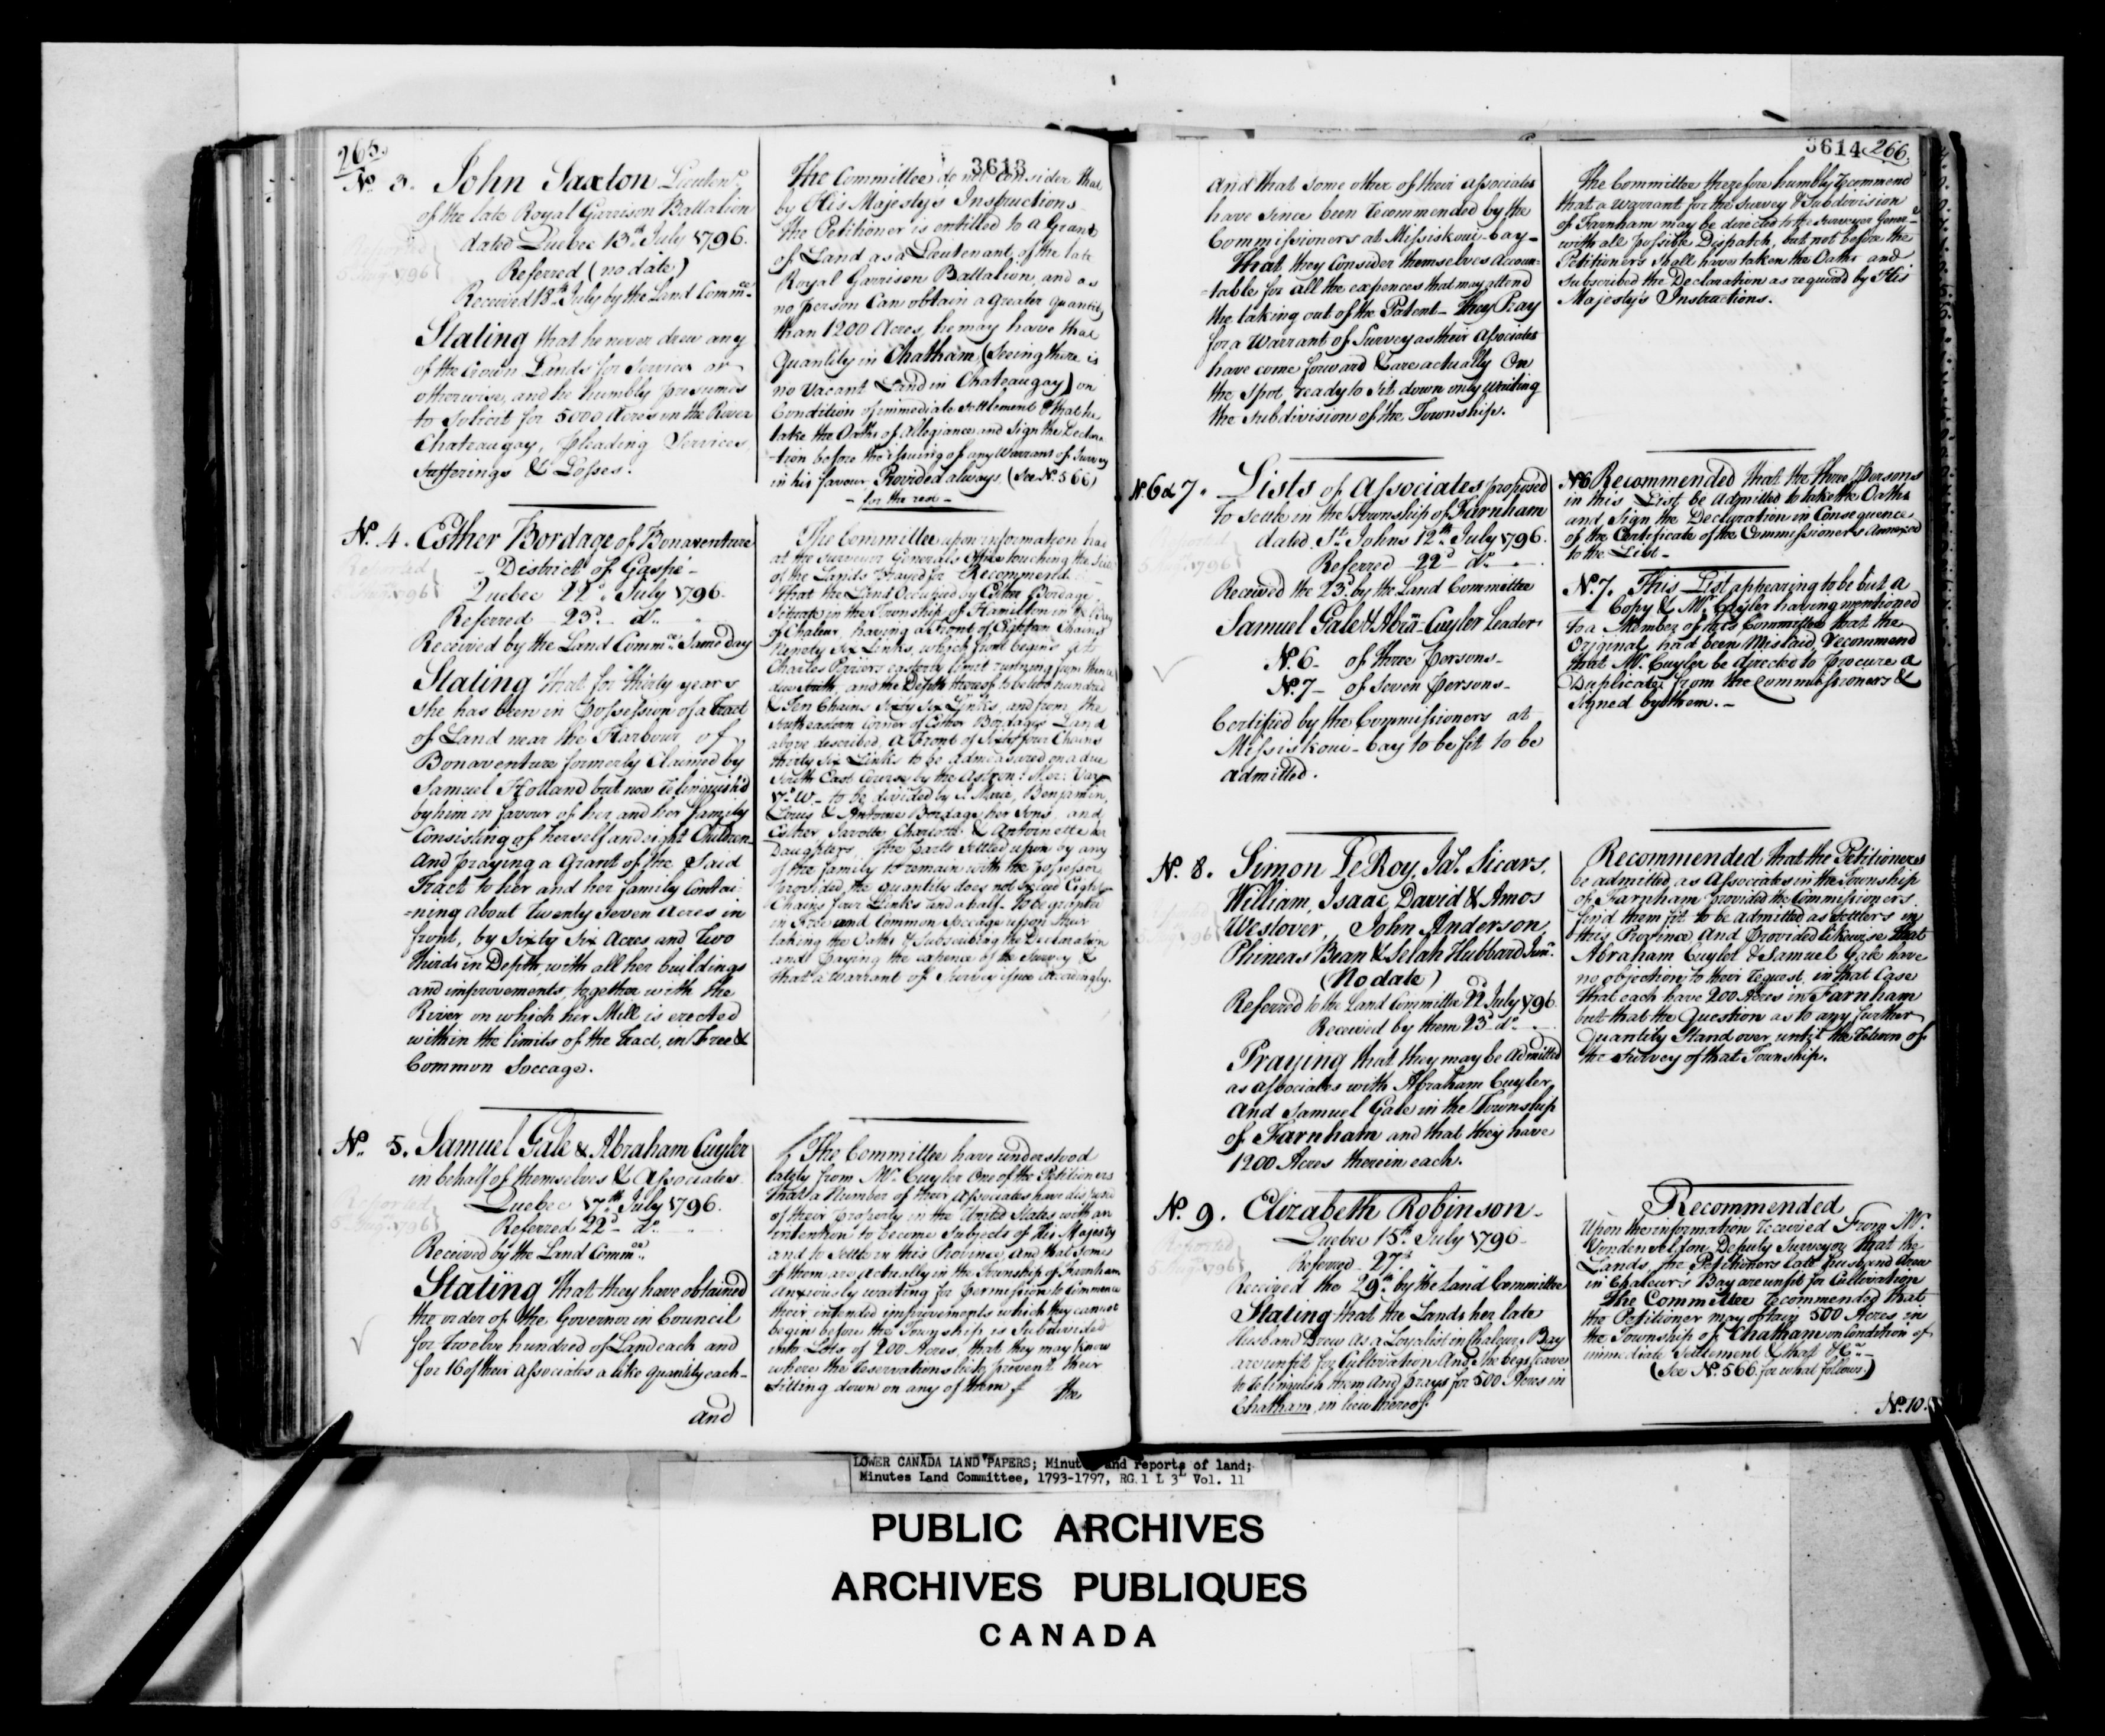 265.
3613
No. 3. John Saxton Lieutent.
of the late Royal Garrison Battalion
dated Quebec 13th July 1796.
Referred (no date)
Received 18th July by the Land Commee.
Stating that he never drew any
of the Crown Lands for Services or
otherwise, and he humbly presumes
to solicit for 5000 Acres in the River
Chateaugay, pleading Services,
Sufferings & Losses.
The Committee do not consider that
by His Majesty's Instructions
the Petitioner is entitled to a Grant
of Land as a Lieutenant of the late
Royal Garrison Battalion, and as
no person Can obtain a greater quantity
than 1200 Acres, he may have that
Quantity in Chatham, (Seeing there is
no Vacant Land in Chateaugay) on
Condition of immediate Settlement & that he
take the Oaths of Allegiance and Sign the Declara
-tion before the issuing of any Warrant of Survey
in his favour Provided always (See No. 566)
- for the rest -
No. 4. Esther Bordage of Bonaventure
- District of Gaspe -
Quebec 22d. July 1796.
Referred 23d. do.
Received by the Land Commee. Same day
Reported
5 Aug. 1796
Stating that for thirty years
She has been in possession of a Tract
of Land near the Harbour of
Bonaventure formerly Claimed by
Samuel Holland but now relinquish'd
by him in favour of her and her family
Consisting of herself and eight Children-
And praying a Grant of the Said
Tract to her and her family Contai-
-ning about Twenty seven Acres in
front, by Sixty Six Acres and Two
thirds in Depth, with all her buildings
and improvements, together with the
River on which her Mill is erected
within the limits of the Tract, in Free &
Common Soccage.
The Committee upon information had
at the Surveyor Generals Office touching the
of the Lands prayed for Recommend
That the Land Occupied by Esther Bordage
Situate in the Township of Hamilton in the Bay
of Chaleur, having a Front of Eighteen Chains
Ninety Six Links, which front begins at
Charles Poiriers easterly limit running from thence
due South, and the Depth thereof to be two hundred
& Ten Chains Sixty Six Links, and from the
Southeastern Corner of Esther Bordage's Land
above described, A Front of Sixty four Chains
thirty Six Links to be admeasured on a due
South East Course by the Astron: Mer: Var
17o. W - to be divided by Marie, Benjamin,
Louis & Antoine Bordage her Sons, and
Esther Charlotte & Antoinette her
Daughters, the parts Settled upon by any
of the family to remain with the possessor
Provided the quantity does not exceed Eight
Chains four Links and a half - To be granted
in Free and Common Soccage upon their
taking the Oaths & Subscribing the Declaration
and paying the expence of the Survey &
that a Warrant of Survey issue Accordingly.
No. 5. Samuel Gale & Abraham Cuyler
in behalf of themselves & Associates
Quebec 17th July 1796.
Referred 22d. do.
Received by the Land Commee.
Reported
5 Aug. 1796
Stating that they have obtained
the order of the Governor in Council
for Twelve hundred of Land each and
for 16 of their Associates a like quantity each-
and
The Committee have understood
lately from Mr. Cuyler One of the Petitioners
that a Number of their Associates have disposed
of their Property in the United States with an
intention to become Subjects of His Majesty
and to Settle in this Province, And that Some
of them are actually in the Township of Farnham
anxiously waiting for permission to Commence
their intended improvements which they cannot
begin before the Township is Subdivided
into Lots of 200 Acres, that they may know
where the Reservations lie to prevent their
sitting down on any of them
the
3614 266
And that some other of their associates
have since been recommended by the
Commissioners at Missiskoui-bay-
That they Consider themselves Accoun-
-table for all the expences that may attend
the taking out of the Patent - They Pray
for a Warrant of Survey as their Associates
have come forward & are actually On
the Spot ready to Sit down only waiting
the Subdivision of the Township.
The Committee therefore humbly recommend
that a warrant for the Survey & Subdivision
of Farnham may be directed to the Surveyor Genera-
with all possible Dispatch, but not before the
Petitioners shall have taken the Oaths and
Subscribed the Declaration as required by His
Majesty's Instructions.
No. 6 & 7. Lists of Associates proposed
to settle in the Township of Farnham
dated St. Johns 12th July 1796.
Referred 22d do.
Received the 23d. by the Land Committee
Samuel Gale & Abrm. Cuyler Leaders
No. 6 - of three persons -
No. 7 - of Seven persons -
Certified by the Commissioners at
Missiskoui-bay to be fit to be
admitted.
No 6 Recommended that the three Persons
in this List be admitted to take the Oaths
and Sign the Declaration in Consequence
of the Certificate of the Commissioners Annexed
to the List -
No. 7. This List appearing to be but a
Copy & Mr. Cuyler having mentioned
to a Member of this Committee that the
Original had been Mislaid, recommend
that Mr. Cuyler be directed to procure a
Duplicate from the Commissioners &
signed by them. -
No. 8. Simon LeRoy, Jas. Sicars,
William, Isaac, David & Amos
Westover, John Anderson,
Phineas Bean & Selah Hubbard Junr.
(No date)
Referred to the Land Committee 22d July 1796.
Received by them 23d do.
Praying that they may be admitted
as associates with Abraham Cuyler
And Samuel Gale in the Township
of Farnham and that they have
1200 Acres therein each.
Recommended that the Petitioners
be admitted as Associates in the Township
of Farnham provided the Commissioners
find them fit to be admitted as Settlers in
this Province, And provided likewise that
Abraham Cuyler & Samuel Gale have
no objection to their request, in that Case
that each have 200 Acres in Farnham
but that the Question as to any further
Quantity Stand over until the Return of
the Survey of that Township.
No. 9. Elizabeth Robinson -
Quebec 15th July 1796
Referred 27th.
Received the 29th. by the Land Committee
Reported
5 Aug. 1796
Stating that the Lands her late
Husband Drew as a Loyalist in Chaleur Bay
are unfit for Cultivation And she begs leave
to relinquish them And prays for 500 Acres in
Chatham, in lieu thereof.
Recommended
Upon the information received From Mr.
Vondenvelden Deputy Surveyor that the
Lands, the Petitioners late husband drew
in Chaleurs Bay are unfit for Cultivation
The Committee recommended that
the Petitioner may obtain 500 Acres in
the Township of Chatham on Condition of
immediate Settlement & that &Ca.
(See No. 566 for what follows)
No. 10.
LOWER CANADA LAND PAPERS; Minutes and reports of land;
Minutes Land Committee, 1793-1797, RG.1 L 3L Vol. 11
PUBLIC ARCHIVES
ARCHIVES PUBLIQUES
CANADA